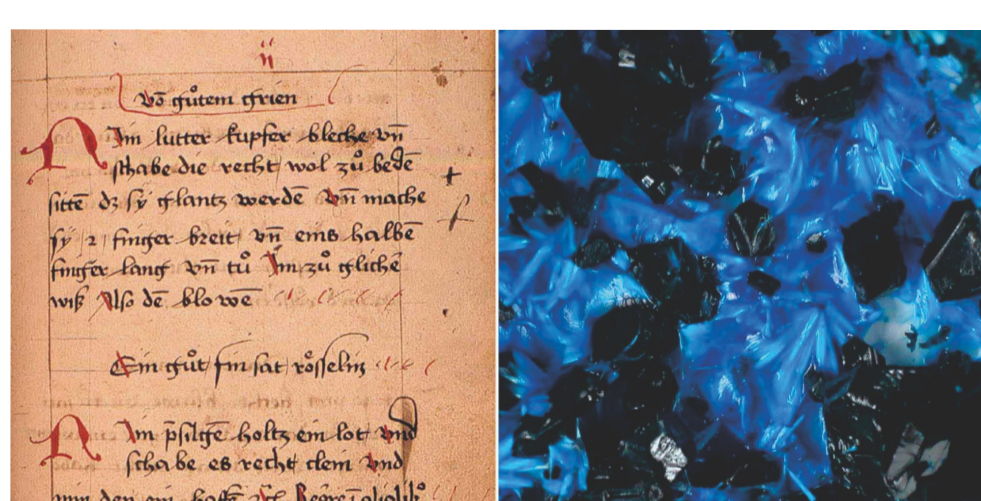 ii
vō gůtem grien
Nim lutter kupfer bleche vn̄
schabe die recht wol zů bedē
sittē dz sÿ glantz werdē vn̄ mache
sÿ 2 finger breit vn̄ eins halbē
finger lang vn̄ tů im zů glichē
wiß Also dē blowē
Ein gůt fin sat rősselin
Nim p̄silgē holtz ein lot vnd
schabe es recht clein vnd